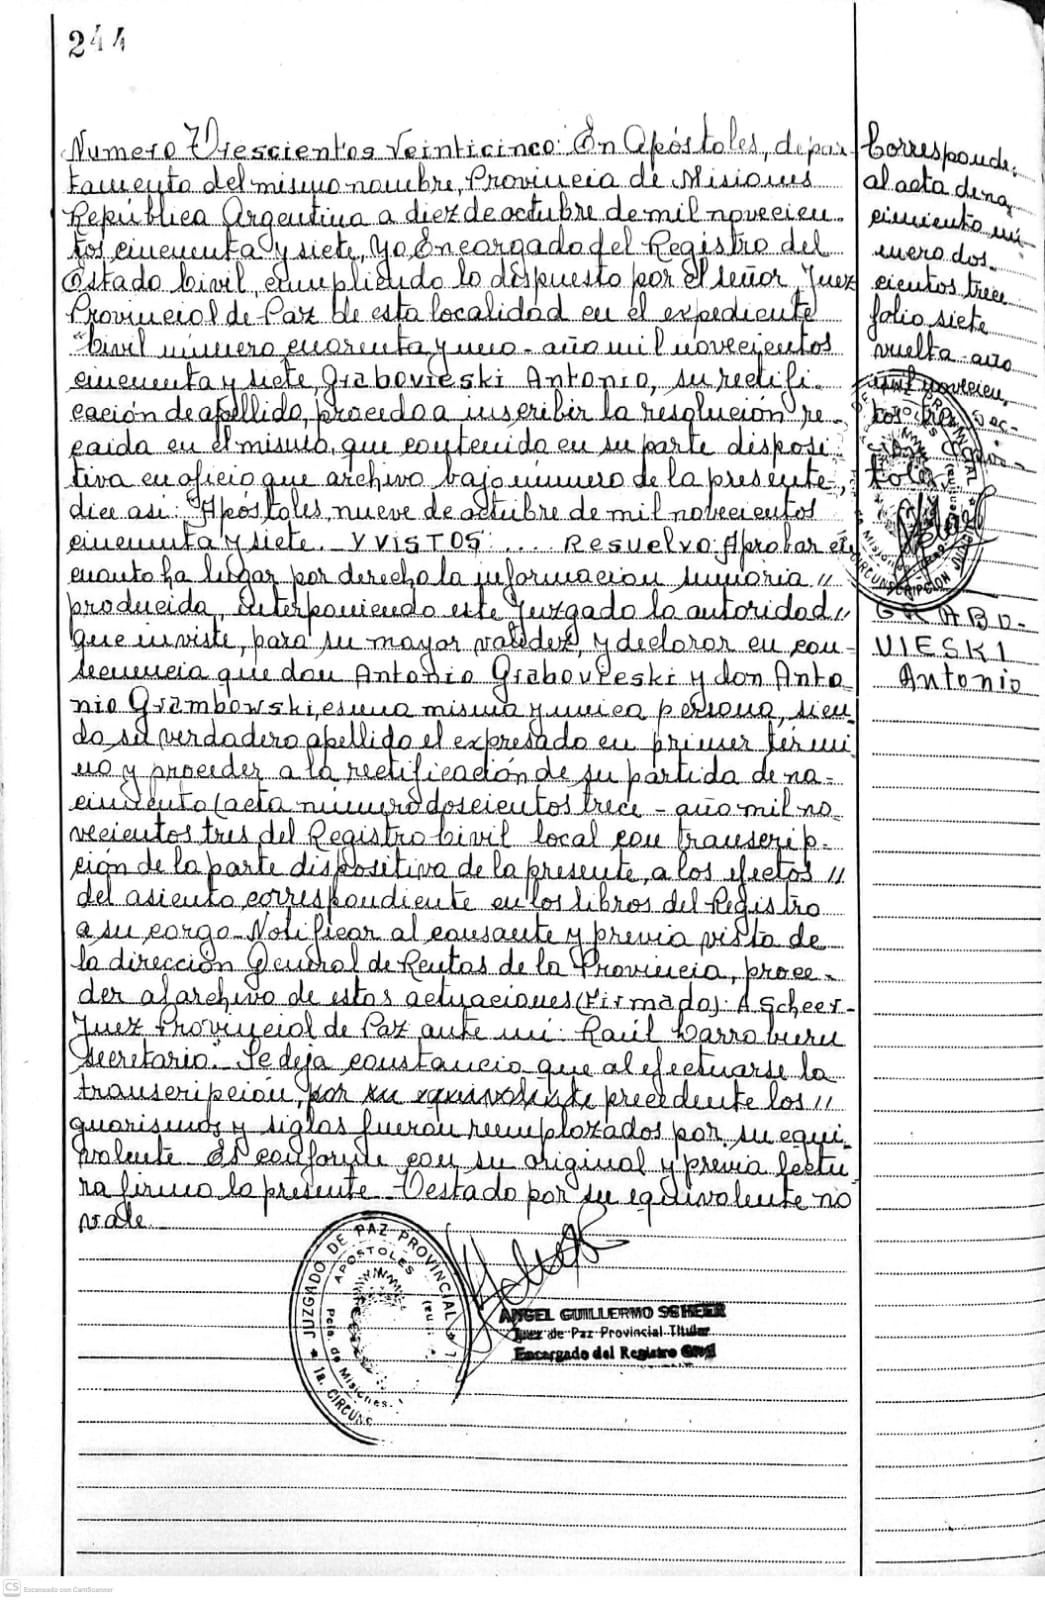 244
Numero Trescientos Veinticinco: En Apóstoles, depar-
tamento del mismo nombre, Provincia de Misiones
República Argentina a diez de octubre de mil novecien-
tos cincuenta y siete, Yo Encargado del Registro del
Estado Civil, cumpliendo lo dispuesto por el señor Juez
Provincial de Paz de esta localidad en el expediente
"Civil número cuarenta y uno - año mil novecientos
cincuenta y siete, Grabovieski Antonio, su rectifi-
cación de apellido, procedo a inscribir la resolución re-
caida en el mismo, que contenida en su parte disposi-
tiva en oficio que archivo bajo número de la presente,
dice asi: "Apóstoles, nueve de octubre de mil novecientos
cincuenta y siete. - Y VISTOS: .... Resuelvo: Aprobar en
cuanto ha lugar por derecho la informacion sumaria //
producida, interponiendo este Juzgado la autoridad //
que inviste, para su mayor validez, y declarar en con-
secuencia que don Antonio Grabovieski y don Anto-
nio Grambowski, es una misma y unica persona, sien-
do su verdadero apellido el expresado en primer térmi-
no y proceder a la rectificación de su partida de na-
cimiento (acta número doscientos trece - año mil no-
vecientos tres del Registro Civil local con transcrip-
ción de la parte dispositiva de la presente, a los efectos //
del asiento correspondiente en los libros del Registro
a su cargo - Notificar al causante y previa vista de
la dirección General de Rentas de la Provincia, proce-
der al archivo de estas actuaciones (Firmado): A Scheer-
Juez Provincial de Paz ante mi: Raúl Barro
secretario". Se deja constancia que al efectuarse la
transcripción, por su equivalente precedente los //
guarismos y siglas fueron reemplazados por su equi-
valente Es conforme con su original y previa lectu-
ra firmo la presente - Testado por su equivalente no
vale
JUZGADO DE PAZ PROVINCIAL
APOSTOLES
Pcia. de Misiones.
1a. CIRCUNS
ANGEL GUILLERMO SCHEER
Juez de Paz Provincial Titular
Encargado del Registro Civil
Corresponde;
al acta de na-
cimiento nú-
mero dos-
cientos trece
folio siete
vuelta - año
mil novecien-
tos tres Sec-
ción Após-
toles.
CIRCUNSCRIPCION JUDICIAL
GRABO-
VIESKI
Antonio
CS Escaneado con CamScanner